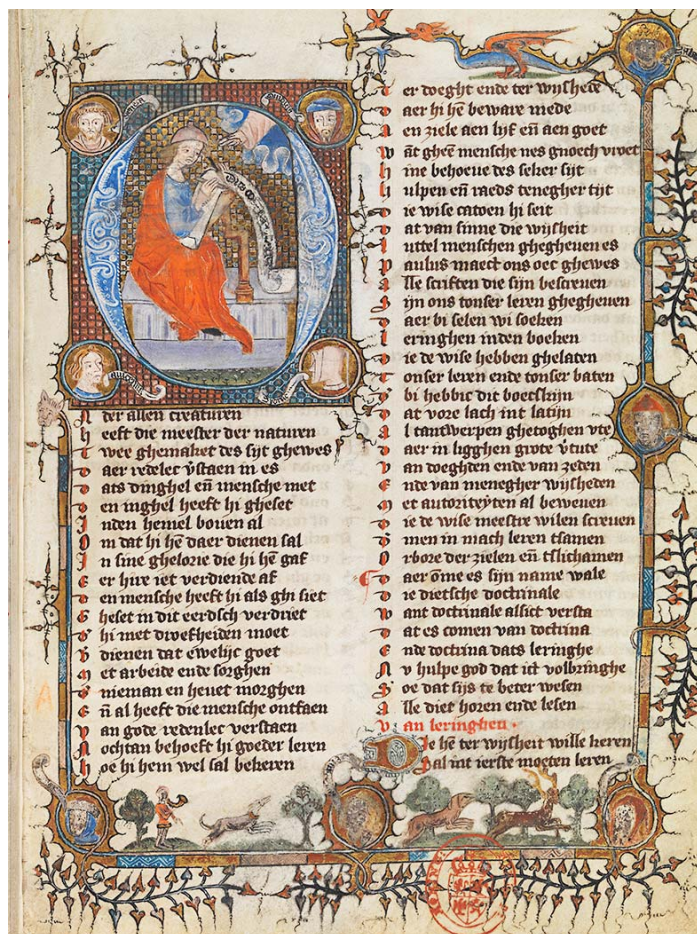 Onder allen creaturen
heeft die meester der naturen
twee ghemaket des sijt ghewes
daer redelec v̄staen in es
dats dinghel eñ mensche met
den inghel heeft hi gheset
Inden hemel bouen al
Om dat hi hē daer dienen sal
In sine ghelorie die hi hē gaf
Eer hire iet verdiende af
den mensche heeft hi als ghi siet
Gheset in dit eerdsch verdriet
hi met diuersheiden moet
Vdienen dat ewelijc goet
Met arbeide ende sorghen
Nieman en heuet morghen
Eñ al heeft die mensche ontfaen
van gode redenlec verstaen
Nochtan behoeft hi goeder leren
hoe hi hem wel sal bekeren
ter doeght ende ter wijsheit
daer hi hē beware mede
Aen ziele aen lijf eñ aen goet
want gheē mensche nes gnoech vroet
hine behoeue des seker sijt
hulpen eñ raeds tenegher tijt
die wise catoen hi seit
dat van sinne die wijsheit
luttel menschen ghegheuen es
paulus maect ons oec ghewes
Alle scriften die sijn bescreuen
Sijn ons tonser leren ghegheuen
daer bi selen wi soeken
leringhen inden boeken
die de wise hebben ghelaten
tonser leren ende tonser baten
bi hebbic dit boecskijn
dat vore lach int latijn
al tantwerpen ghetoghen vte
daer in ligghen grote v̄tute
van doeghden ende van zeden
Ende van menegher wijsheden
Met autoriteyten al beweuen
die de wise meestre wilen screuen
men in mach leren tsamen
Orbore der zielen eñ tslichamen
daer ōme es sijn name wale
die dietsche doctrinale
want doctrinale alsict versta
dat es comen van doctrina
Ende doctrina dats leringhe
Nv hulpe god dat ict volbringhe
Soe dat sijs te beter wesen
Alle diet horen ende lesen
van leringhen.
Die hē ter wijsheit wille keren
Sal int ierste moeten leren